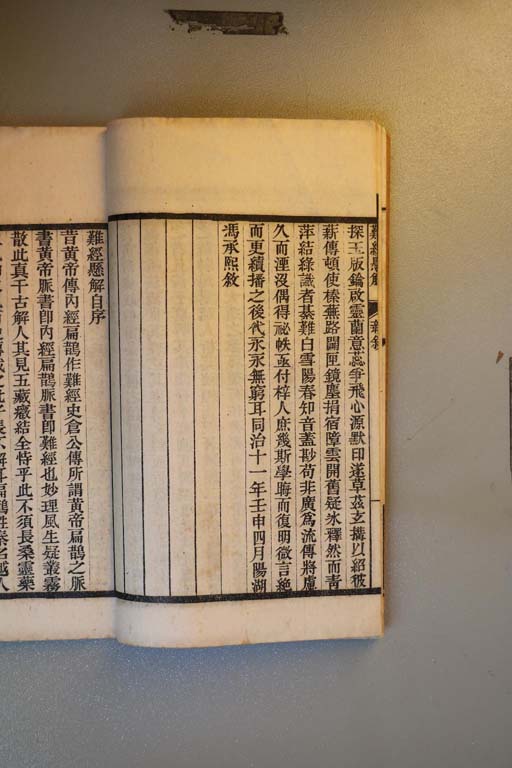 難經懸解 新敘
探玉版鑰啟靈蘭意蕊爭飛心源默印遂草茲玄搆以紹彼
薪傳頓使榛蕪路闢匣鏡塵捐宿障雲開舊疑冰釋然而青
萍結綠識者綦難白雪陽春知音蓋尠苟非廣為流傳將慮
久而湮沒偶得祕帙亟付梓人庶幾斯學晦而復明微言絶
而更續播之後代永永無窮耳同治十一年壬申四月陽湖
馮承熙敘
難經懸解自序
昔黃帝傳內經扁鵲作難經史倉公傳所謂黃帝扁鵲之脈
書黃帝脈書卽內經扁鵲脈書卽難經也妙理風生疑叢霧
散此真千古解人其見五藏癥結全恃乎此不須長桑靈藥